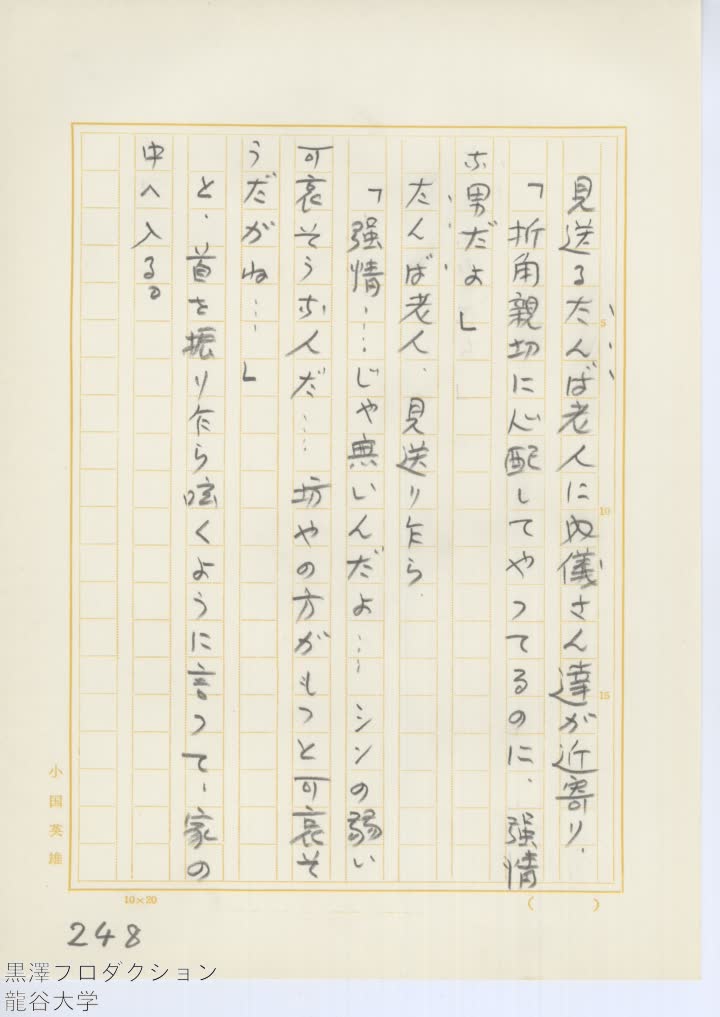 見送るたんば老人に内儀さん達が近寄り、
「折角親切に心配してやってるのに、強情
な男だよ」
たんば老人、見送り乍ら、
「強情……じゃ無いんだよ……シンの弱い
可哀そうな人だ……坊やの方がもっと可哀そ
うだがね……」
と、首を振り乍ら呟くように言って、家の
中へ入る。
5
10
15
小国英雄
10×20
(　)
248
黒澤プロダクション
龍谷大学